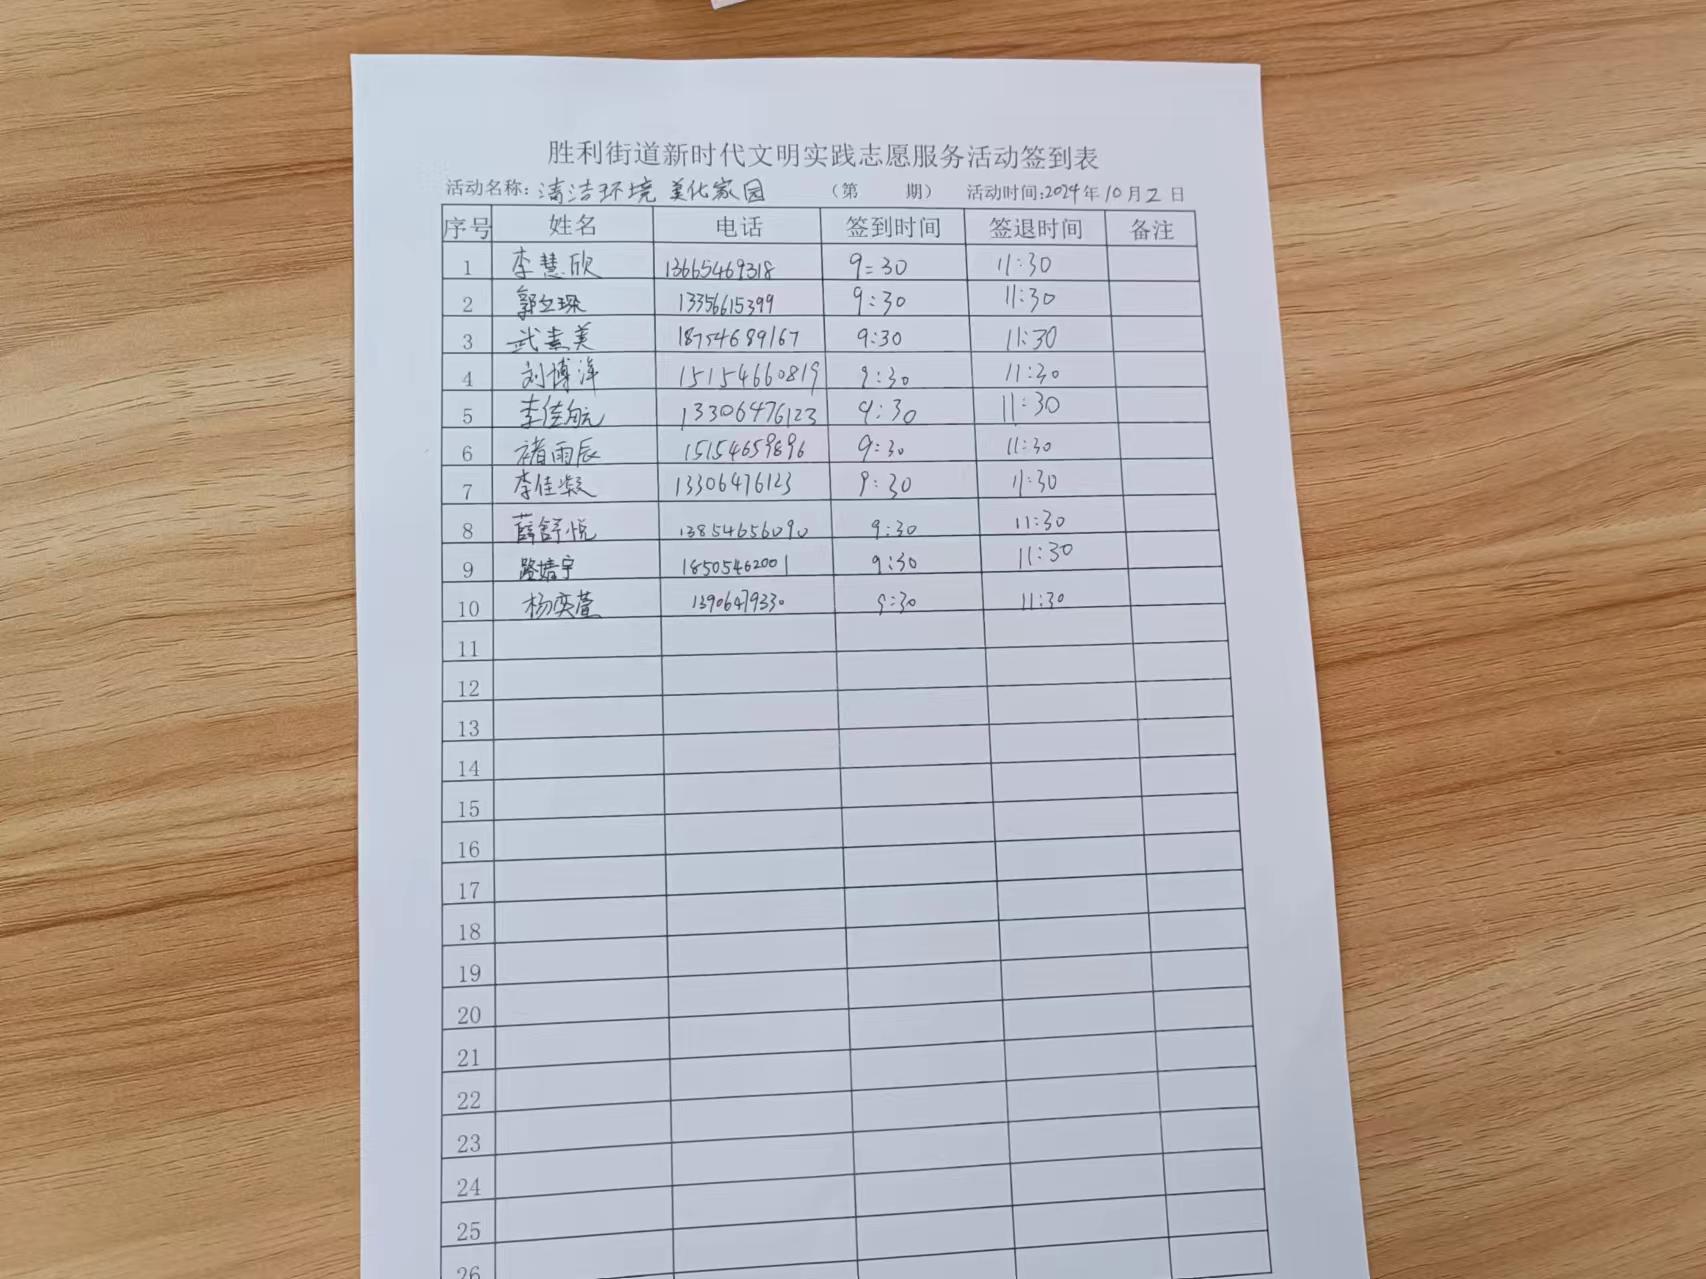 胜利街道新时代文明实践志愿服务活动签到表
活动名称: 清洁环境 美化家园 (第 期) 活动时间:2024年10月2日
序号 姓名 电话 签到时间 签退时间 备注
1 李慧欣 13665469318 9:30 11:30
2 郭立琛 13356615399 9:30 11:30
3 武素美 18754689167 9:30 11:30
4 刘博洋 15154660819 9:30 11:30
5 李佳航 13306476123 9:30 11:30
6 褚雨辰 15154659896 9:30 11:30
7 李佳凝 13306476123 9:30 11:30
8 薛舒悦 13854656090 9:30 11:30
9 路婧宇 18505462001 9:30 11:30
10 杨奕萱 13906479330 9:30 11:30
11
12
13
14
15
16
17
18
19
20
21
22
23
24
25
26